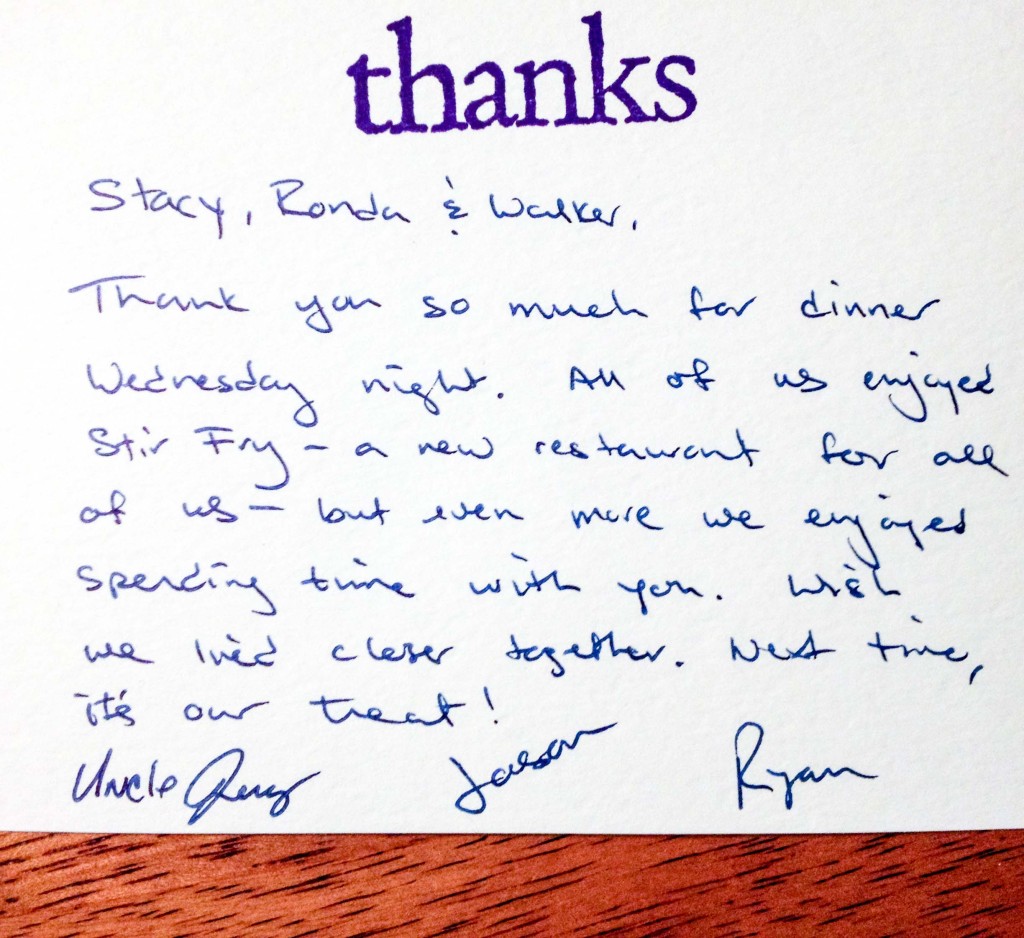 thanks
Stacy, Ronda & Walker,
Thank you so much for dinner
Wednesday night. All of us enjoyed
Stir Fry – a new restaurant for all
of us – but even more we enjoyed
spending time with you. Wish
we lived closer together. Next time,
it's our treat!
Uncle Jason Ryan